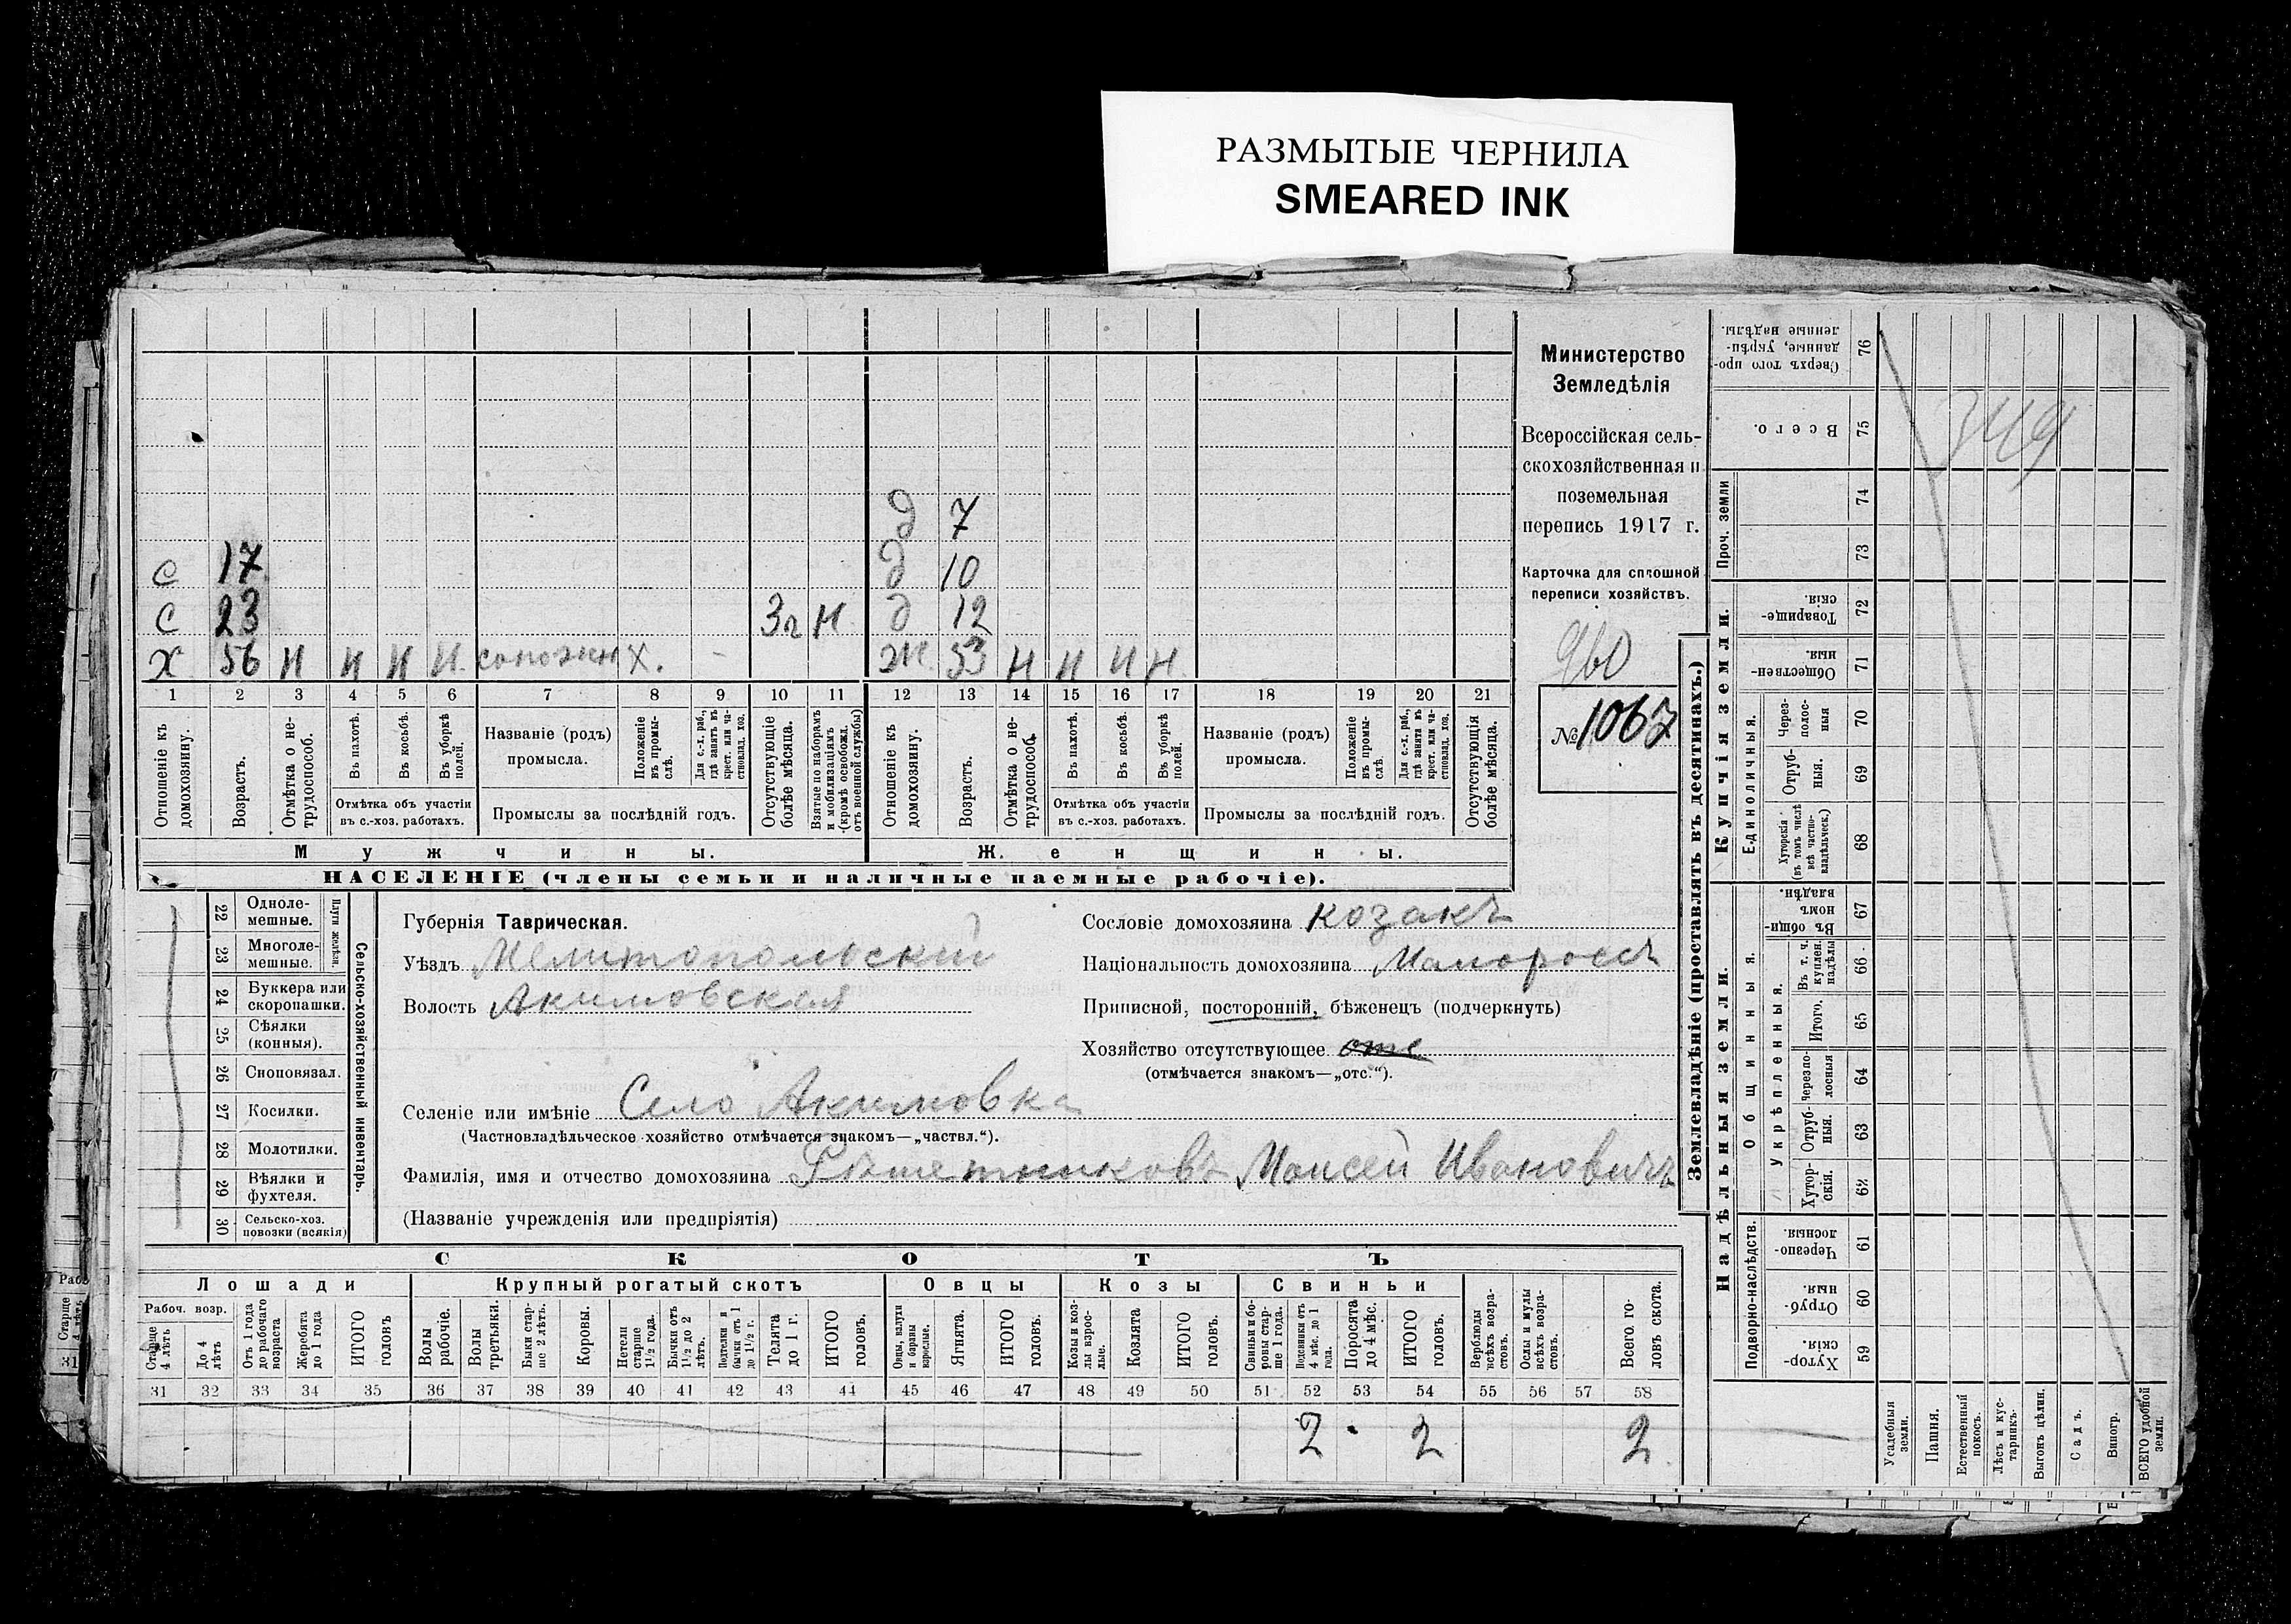 РАЗМЫТЫЕ ЧЕРНИЛА
SMEARED INK
д 7
с 17 д 10
с 23 3г н д 12
х 56 н н н н х. - ж. 53 н н н н
1 2 3 4 5 6 7 8 9 10 11 12 13 14 15 16 17 18 19 20 21
Отношеніе къ домохозяину.
Возрастъ.
Отмѣтка о не-трудоспособ.
Въ пахотѣ.
Въ косьбѣ.
Въ уборкѣ полей.
Отмѣтка объ участіи
въ с.-хоз. работахъ.
Названіе (родъ)
промысла.
Положеніе въ промы-слѣ.
Для с.-х. раб., гдѣ занятъ въ крест. или ча-стновлад. хоз.
Промыслы за послѣдній годъ.
Отсутствующіе болѣе мѣсяца.
Взятые по наборамъ и мобилизаціямъ (кромѣ освобожд. отъ военной службы)
Отношеніе къ домохозяину.
Возрастъ.
Отмѣтка о не-трудоспособ.
Въ пахотѣ.
Въ косьбѣ.
Въ уборкѣ полей.
Отмѣтка объ участіи
въ с.-хоз. работахъ.
Названіе (родъ)
промысла.
Положеніе въ промы-слѣ.
Для с.-х. раб., гдѣ занята въ крест. или ча-стновлад. хоз.
Промыслы за послѣдній годъ.
Отсутствующія болѣе мѣсяца.
Мужчины. Женщины.
НАСЕЛЕНІЕ (члены семьи и наличные наемные рабочіе).
Министерство
Земледѣлія
Всероссійская сель-
скохозяйственная и
поземельная
перепись 1917 г.
Карточка для сплошной
переписи хозяйствъ.
960
№ 1067
22 Одноле-мешные.
23 Многоле-мешные.
Плуги желѣзн.
24 Буккера или скоропашки.
25 Сѣялки (конныя).
26 Сноповязал.
27 Косилки.
28 Молотилки.
29 Вѣялки и фухтеля.
30 Сельско-хоз. повозки (всякія)
Сельско-хозяйственный инвентарь.
Губернія Таврическая.
Уѣздъ Мелитопольскій
Волость Акимовская
Селеніе или имѣніе Село Акимовка
(Частновладѣльческое хозяйство отмѣчается знакомъ—„частвл.“).
Фамилія, имя и отчество домохозяина Рѣшетниковъ Моисей Ивановичъ
(Названіе учрежденія или предпріятія)
Сословіе домохозяина козакъ
Національность домохозяина Малороссъ
Приписной, посторонній, бѣженецъ (подчеркнуть)
Хозяйство отсутствующее отс
(отмѣчается знакомъ—„отс.“).
СКОТЪ
Лошади Крупный рогатый скотъ Овцы Козы Свиньи
Рабоч. возр.
Старше 4 лѣтъ
До 4 лѣтъ
Отъ 1 года до рабочаго возраста
Жеребята до 1 года
ИТОГО головъ
Волы рабочіе.
Волы третьяки.
Быки стар-ше 2 лѣтъ.
Коровы.
Нетели старше 1 1/2 года.
Бычки отъ 1 1/2 до 2 лѣтъ.
Подтелки и бычки отъ 1 до 1 1/2 г.
Телята до 1 г.
ИТОГО головъ.
Овцы, валухи и бараны взрослые.
Ягнята.
ИТОГО головъ.
Козы и коз-лы взрос-лые.
Козлята
ИТОГО головъ.
Свиньи и бо-ровы стар-ше 1 года.
Подсвинки отъ 4 мѣс. до 1 года.
Поросята до 4 мѣс.
ИТОГО головъ.
Верблюды всѣхъ возра-стовъ.
Ослы и мулы всѣхъ возра-стовъ.
Всего го-ловъ скота.
31 32 33 34 35 36 37 38 39 40 41 42 43 44 45 46 47 48 49 50 51 52 53 54 55 56 57 58
2 2 2
Землевладѣніе (проставлять въ десятинахъ.)
Купчія земли.
Надѣльныя земли.
Сверхъ того про-данные, укрѣп-ленные надѣлы. 76
Всего. 75
Проч. земли 74 73
Товарище-скія. 72
Обществен-ныя. 71
Единоличныя.
Через-полос-ныя 70
Отруб-ныя. 69
Хуторскія (въ томъ числѣ всѣ частно-владѣльческ.) 68
Общинныя.
Въ общин-номъ владѣн. 67
Укрѣпленныя.
Въ т. ч. куплен. надѣлы 66
Итого. 65
Черезпо-лосныя 64
Отруб-ныя. 63
Хутор-скія. 62
Подворно-наслѣдств.
Черезпо-лосныя. 61
Отруб-ныя. 60
Хутор-скія. 59
Усадебныя земли.
Пашня.
Естественный покосъ.
Лѣсъ и кус-тарникъ.
Выгонъ цѣлин.
Садъ.
Виногр.
ВСЕГО удобной земли.
Старше
31